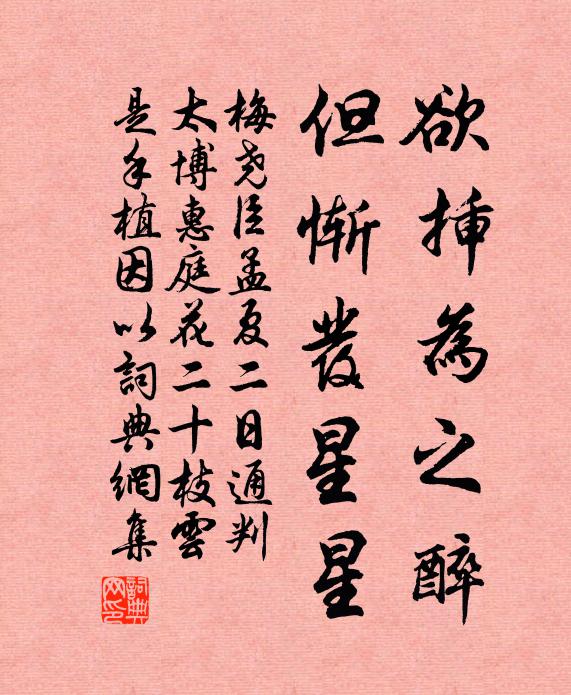 欲插為之醉
但慚發星星
梅堯臣孟夏二日通判
太博惠庭花二十枝雲
是手植因以詞典網集
詞典網印